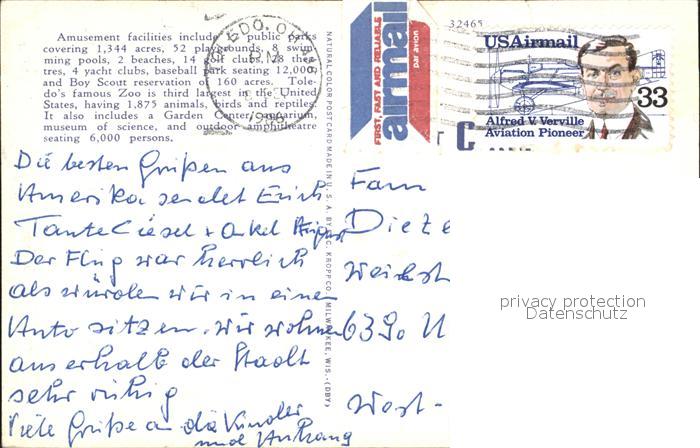 Amusement facilities include public parks
covering 1,344 acres, 52 playgrounds, 8 swim-
ming pools, 2 beaches, 14 golf clubs, 28 thea-
tres, 4 yacht clubs, baseball park seating 12,000
and Boy Scout reservation of 160 acres. Tole-
do's famous Zoo is third largest in the United
States, having 1,875 animals, birds and reptiles.
It also includes a Garden Center, aquarium,
museum of science, and outdoor amphitheatre
seating 6,000 persons.
1986
NATURAL COLOR POSTCARD MADE IN U. S. A. BY E. C. KROPP CO., MILWAUKEE, WIS.-(DBY)
FIRST, FAST AND RELIABLE
airmail
par avion
32465
USAirmail
33
Alfred V. Verville
Aviation Pioneer
C
Die besten Grüßen aus
Amerika sendet Erich
Tante Liesel + Onkel August
Der Flug war herrlich
als würden wir in einen
Auto sitzen. Wir wohnen
ausserhalb der Stadt
sehr ruhig
Viele Grüße an die Kinder
und Anhang
Fam
Dieze
6390 U
West-
privacy protection
Datenschutz